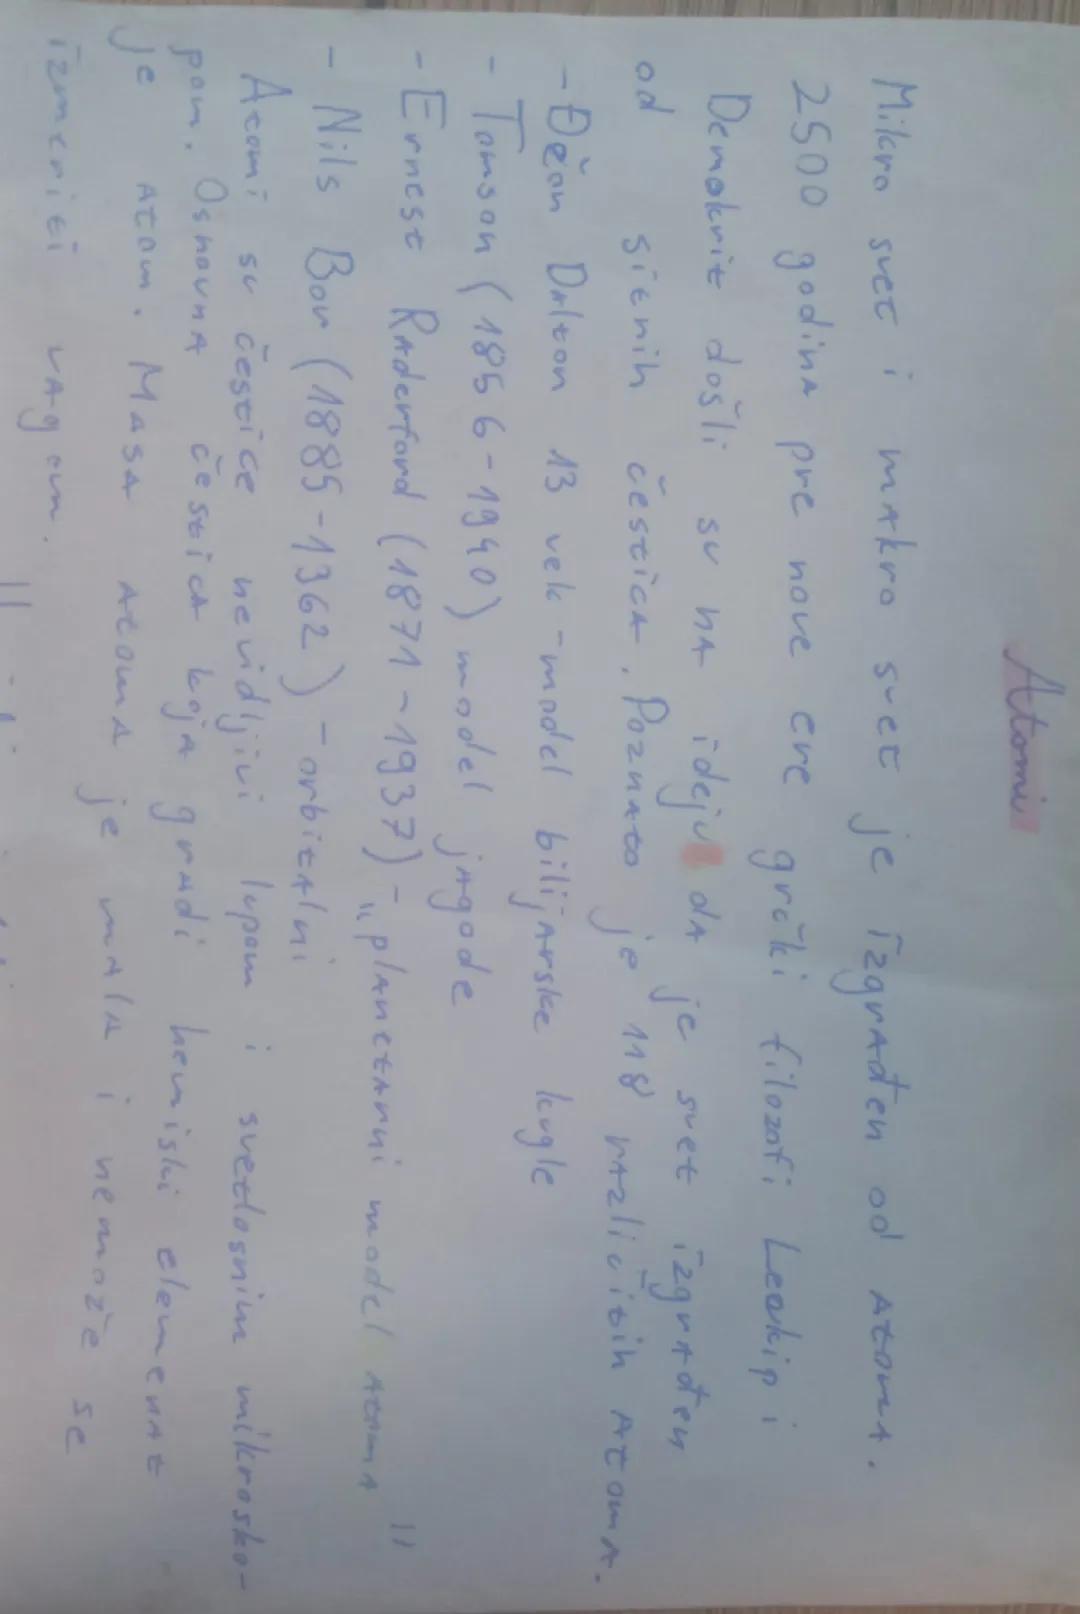 Atomi
Mikro svet i makro svet je izgrađen od atoma.
2500 godina pre nove ere grčki filozofi Leukip i
Demokrit došli su na ideju da je svet izgrađen
od sitnih čestica. Poznato je 118 različitih atoma.
- Đžon Dalton 13 vek - model bilijarske kugle
- Tomson (1856-1940) model jagode
- Ernest Raderford (1871-1937) - "planetarni model atoma"
- Nils Bor (1885-1362) - orbitalni
Atomi su čestice nevidljivi lupom i svetlosnim mikrosko-
pom. Osnovna čestica koja gradi hemiski elemenat
je atom. Masa atoma je mala i nemože se
izmeriti vagom.